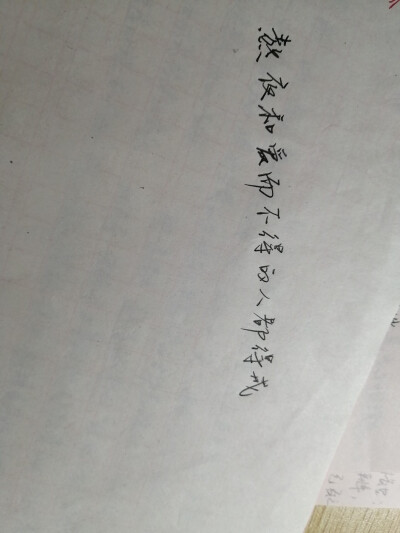 熬夜和爱而不得的人都得戒